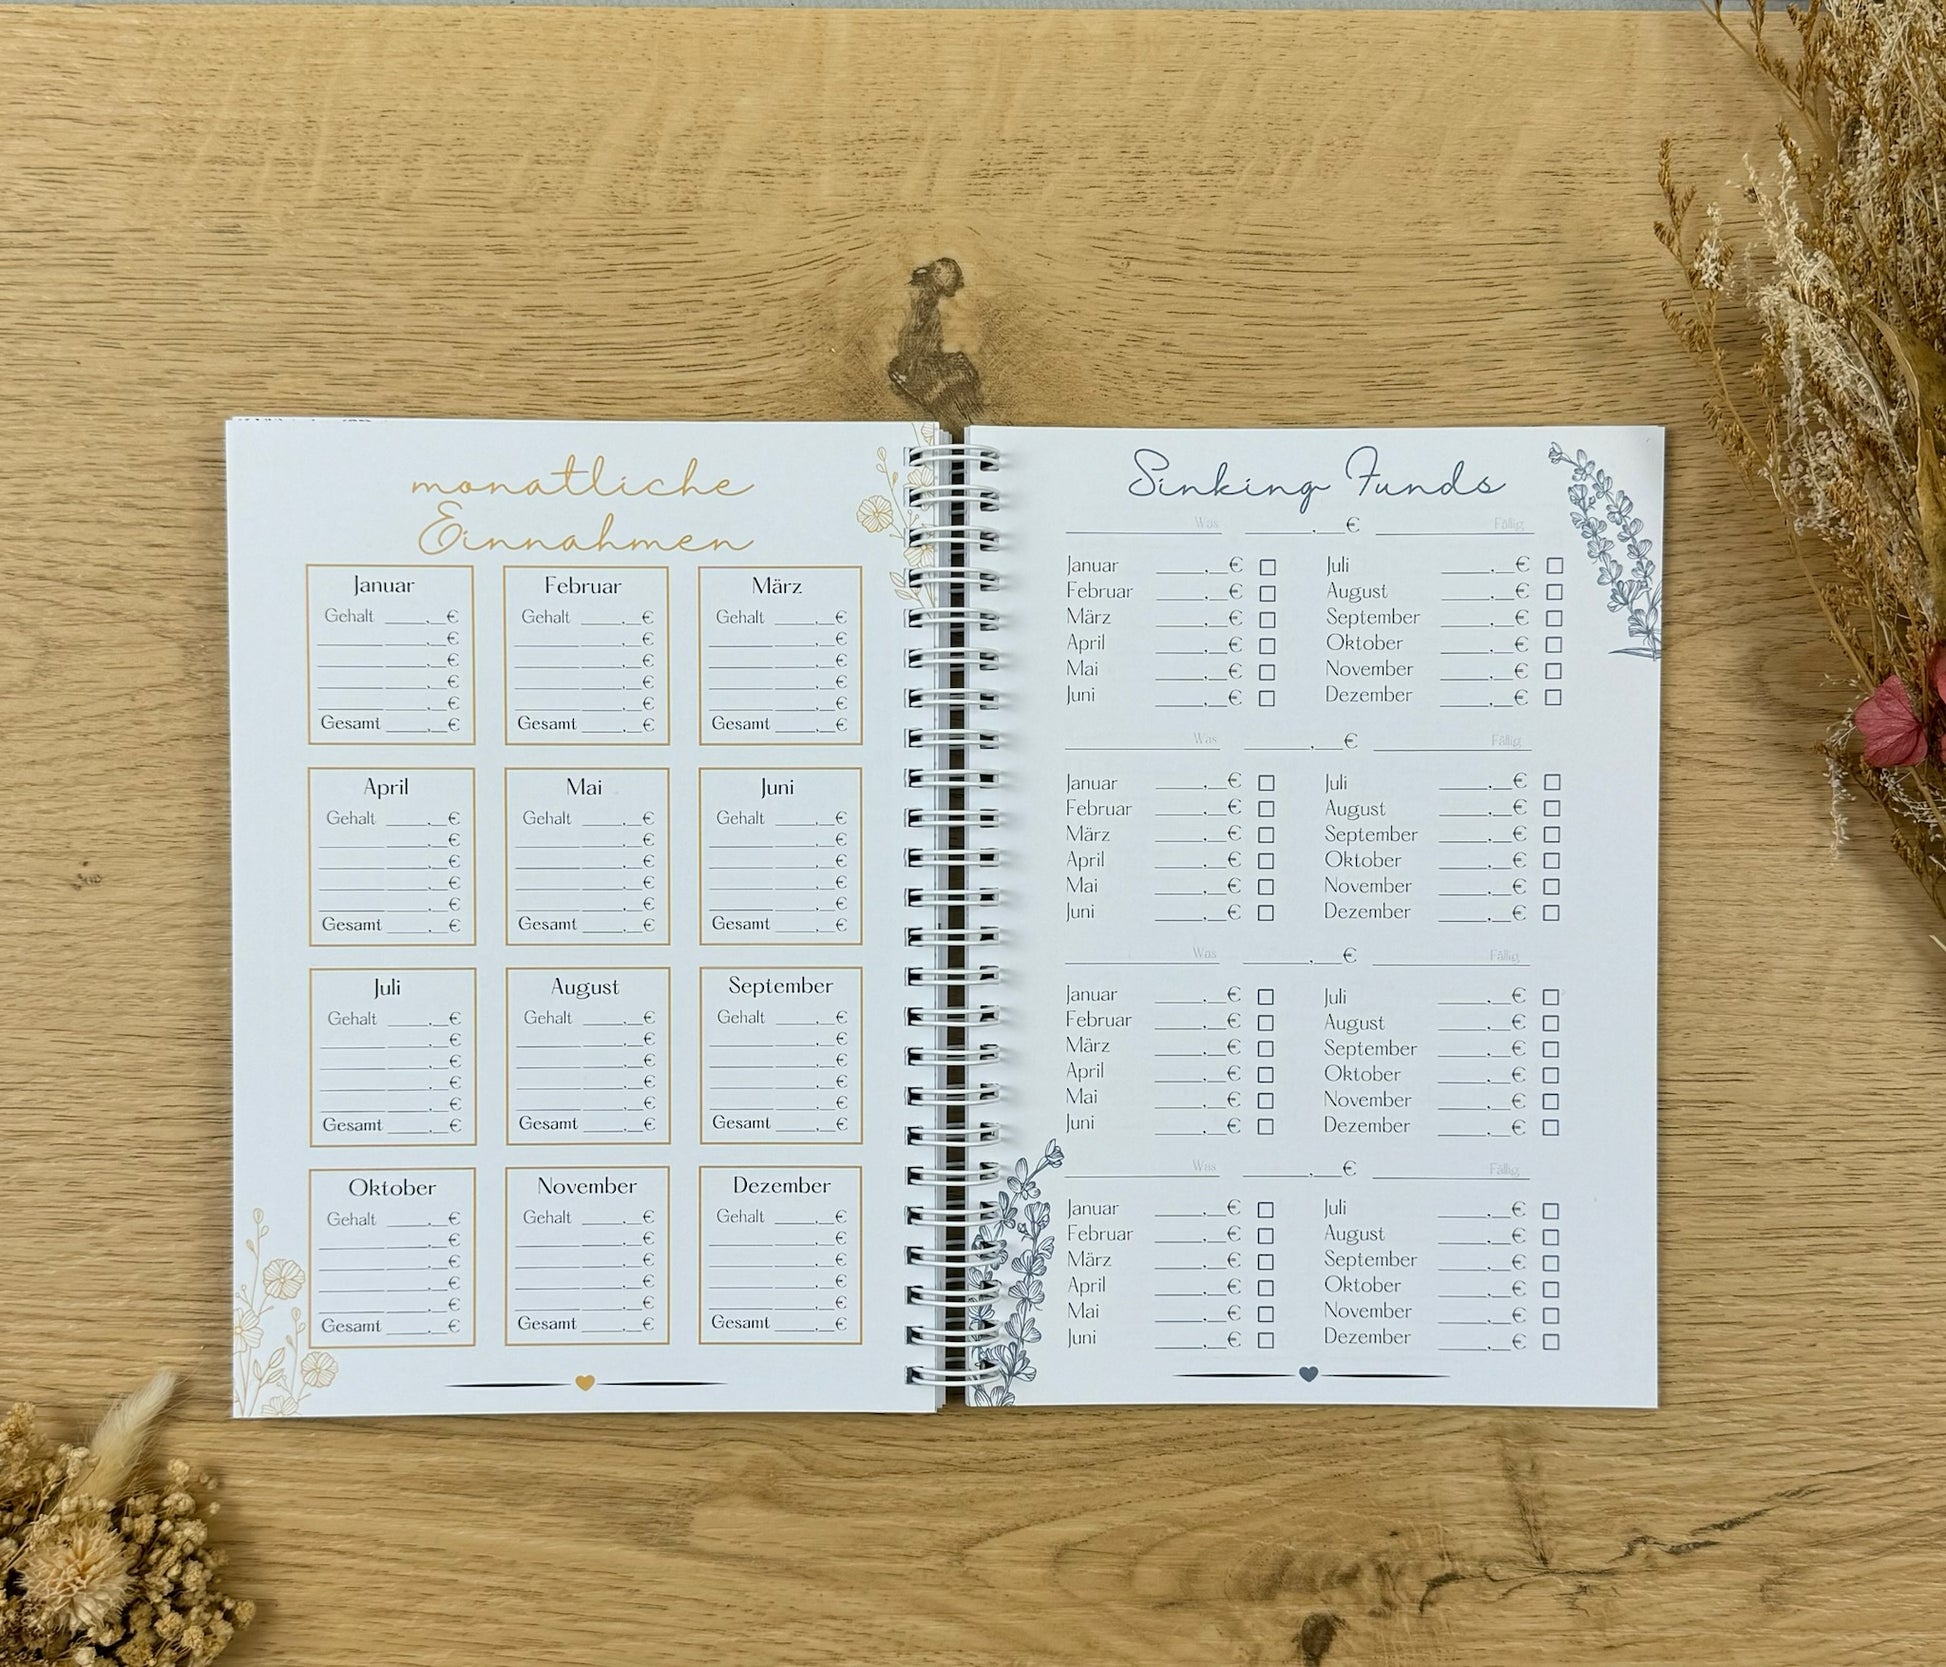 monatliche
Einnahmen
Januar
Gehalt ____,__€
____ ____,__€
____ ____,__€
____ ____,__€
____ ____,__€
Gesamt ____,__€
Februar
Gehalt ____,__€
____ ____,__€
____ ____,__€
____ ____,__€
____ ____,__€
Gesamt ____,__€
März
Gehalt ____,__€
____ ____,__€
____ ____,__€
____ ____,__€
____ ____,__€
Gesamt ____,__€
April
Gehalt ____,__€
____ ____,__€
____ ____,__€
____ ____,__€
____ ____,__€
Gesamt ____,__€
Mai
Gehalt ____,__€
____ ____,__€
____ ____,__€
____ ____,__€
____ ____,__€
Gesamt ____,__€
Juni
Gehalt ____,__€
____ ____,__€
____ ____,__€
____ ____,__€
____ ____,__€
Gesamt ____,__€
Juli
Gehalt ____,__€
____ ____,__€
____ ____,__€
____ ____,__€
____ ____,__€
Gesamt ____,__€
August
Gehalt ____,__€
____ ____,__€
____ ____,__€
____ ____,__€
____ ____,__€
Gesamt ____,__€
September
Gehalt ____,__€
____ ____,__€
____ ____,__€
____ ____,__€
____ ____,__€
Gesamt ____,__€
Oktober
Gehalt ____,__€
____ ____,__€
____ ____,__€
____ ____,__€
____ ____,__€
Gesamt ____,__€
November
Gehalt ____,__€
____ ____,__€
____ ____,__€
____ ____,__€
____ ____,__€
Gesamt ____,__€
Dezember
Gehalt ____,__€
____ ____,__€
____ ____,__€
____ ____,__€
____ ____,__€
Gesamt ____,__€
Sinking Funds
Was ____,__€ Fällig
Januar ____,__€ ☐ Juli ____,__€ ☐
Februar ____,__€ ☐ August ____,__€ ☐
März ____,__€ ☐ September ____,__€ ☐
April ____,__€ ☐ Oktober ____,__€ ☐
Mai ____,__€ ☐ November ____,__€ ☐
Juni ____,__€ ☐ Dezember ____,__€ ☐
Was ____,__€ Fällig
Januar ____,__€ ☐ Juli ____,__€ ☐
Februar ____,__€ ☐ August ____,__€ ☐
März ____,__€ ☐ September ____,__€ ☐
April ____,__€ ☐ Oktober ____,__€ ☐
Mai ____,__€ ☐ November ____,__€ ☐
Juni ____,__€ ☐ Dezember ____,__€ ☐
Was ____,__€ Fällig
Januar ____,__€ ☐ Juli ____,__€ ☐
Februar ____,__€ ☐ August ____,__€ ☐
März ____,__€ ☐ September ____,__€ ☐
April ____,__€ ☐ Oktober ____,__€ ☐
Mai ____,__€ ☐ November ____,__€ ☐
Juni ____,__€ ☐ Dezember ____,__€ ☐
Was ____,__€ Fällig
Januar ____,__€ ☐ Juli ____,__€ ☐
Februar ____,__€ ☐ August ____,__€ ☐
März ____,__€ ☐ September ____,__€ ☐
April ____,__€ ☐ Oktober ____,__€ ☐
Mai ____,__€ ☐ November ____,__€ ☐
Juni ____,__€ ☐ Dezember ____,__€ ☐